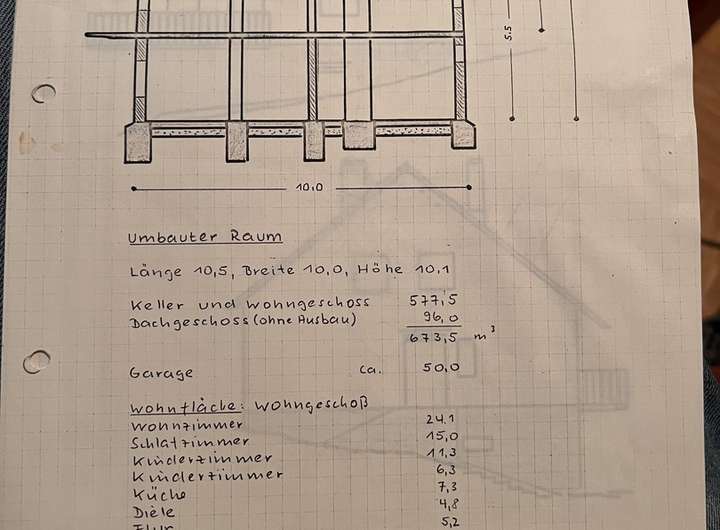 5.5
10,0
Umbauter Raum
Länge 10,5, Breite 10,0, Höhe 10,1
Keller und Wohngeschoss 577,5
Dachgeschoss (ohne Ausbau) 96,0
673,5 m³
Garage ca. 50,0
Wohnfläche: Wohngeschoß
Wohnzimmer 24.1
Schlafzimmer 15,0
Kinderzimmer 11,3
Kinderzimmer 6,3
Küche 7,3
Diele 4,8
Flur 5,2